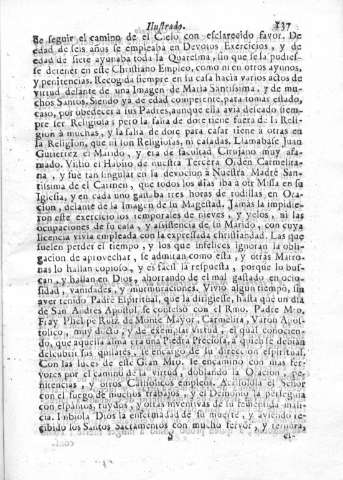 Ilustrado. 137
de seguir el camino de el Cielo con esclarecido favor. De
edad de seis años se empleaba en Devotos Exercicios, y de
edad de siete ayunaba toda la Quaresma, sin que se la pudies-
se detener en este Christiano Empleo, como ni en otros ayunos,
y penitencias. Recogida siempre en su casa hacia varios actos de
virtud delante de una Imagen de Maria Santissima, y de mu-
chos Santos. Siendo yà de edad competente, para tomar estado,
caso, por obedecer à sus Padres, aunque ella avia deseado siem-
pre ser Religiosa; pero la falta de dote tiene fuera de la Reli-
gion à muchas, y la falta de dote para casar tiene à otras en
la Religion, que ni son Religiosas, ni casadas. Llamabase Juan
Gutierrez el Marido, y era de facultad Cirujano muy afa-
mado. Vistio el Habito de nuestra Tercera Orden Carmelita-
na, y fue tan singular en la devocion à Nuestra Madre San-
tissima de el Carmen, que todos los dias iba à oir Missa en su
Iglesia, y en cada uno gastaba tres horas de rodillas en Ora-
cion, delante de la Imagen de su Magestad. Jamàs la impidie-
ron este exercicio los temporales de nieves, y yelos, ni las
ocupaciones de su casa, y assistencia de su Marido, con cuya
licencia vivia empleada con la expressada christiandad. Las que
suelen perder el tiempo, y los que infelices ignoran la obli-
gacion de aprovechar, se admiran como esta, y otras Matro-
nas lo hallan copioso, y es facil la respuesta, porque lo bus-
can, y hallan en Dios, ahorrando de el mal gastado en ocio-
sidad, vanidades, y murmuraciones. Vivio algun tiempo, sin
aver tenido Padre Espiritual, que la dirigiesse, hasta que un dia
de San Andres Apostol se confesò con el Rmo. Padre Mro.
Fray Phelipe Ruiz de Monte Mayor, Carmelita, Varon Apos-
tolico, muy docto, y de exemplar virtud, el qual conocien-
do, que aquella alma era una Piedra Preciosa, à quien se debian
descubrir sus quilates, se encargò de su direccion espiritual.
Con las luces de este Gran Mro. fue caminando con mas fer-
vores por el camino de la virtud, doblando la Oracion, pe-
nitencias, y otros Catholicos empleos. Acrisolola el Señor
con el fuego de muchos trabajos, y el Demonio la perseguia
con espantos, ruydos, y otras inventivas de su fementida mali-
cia. Embiola Dios la enfermedad de su muerte, y aviendo re-
cibido los Santos Sacramentos con mucho fervor, y ternura,
S el-